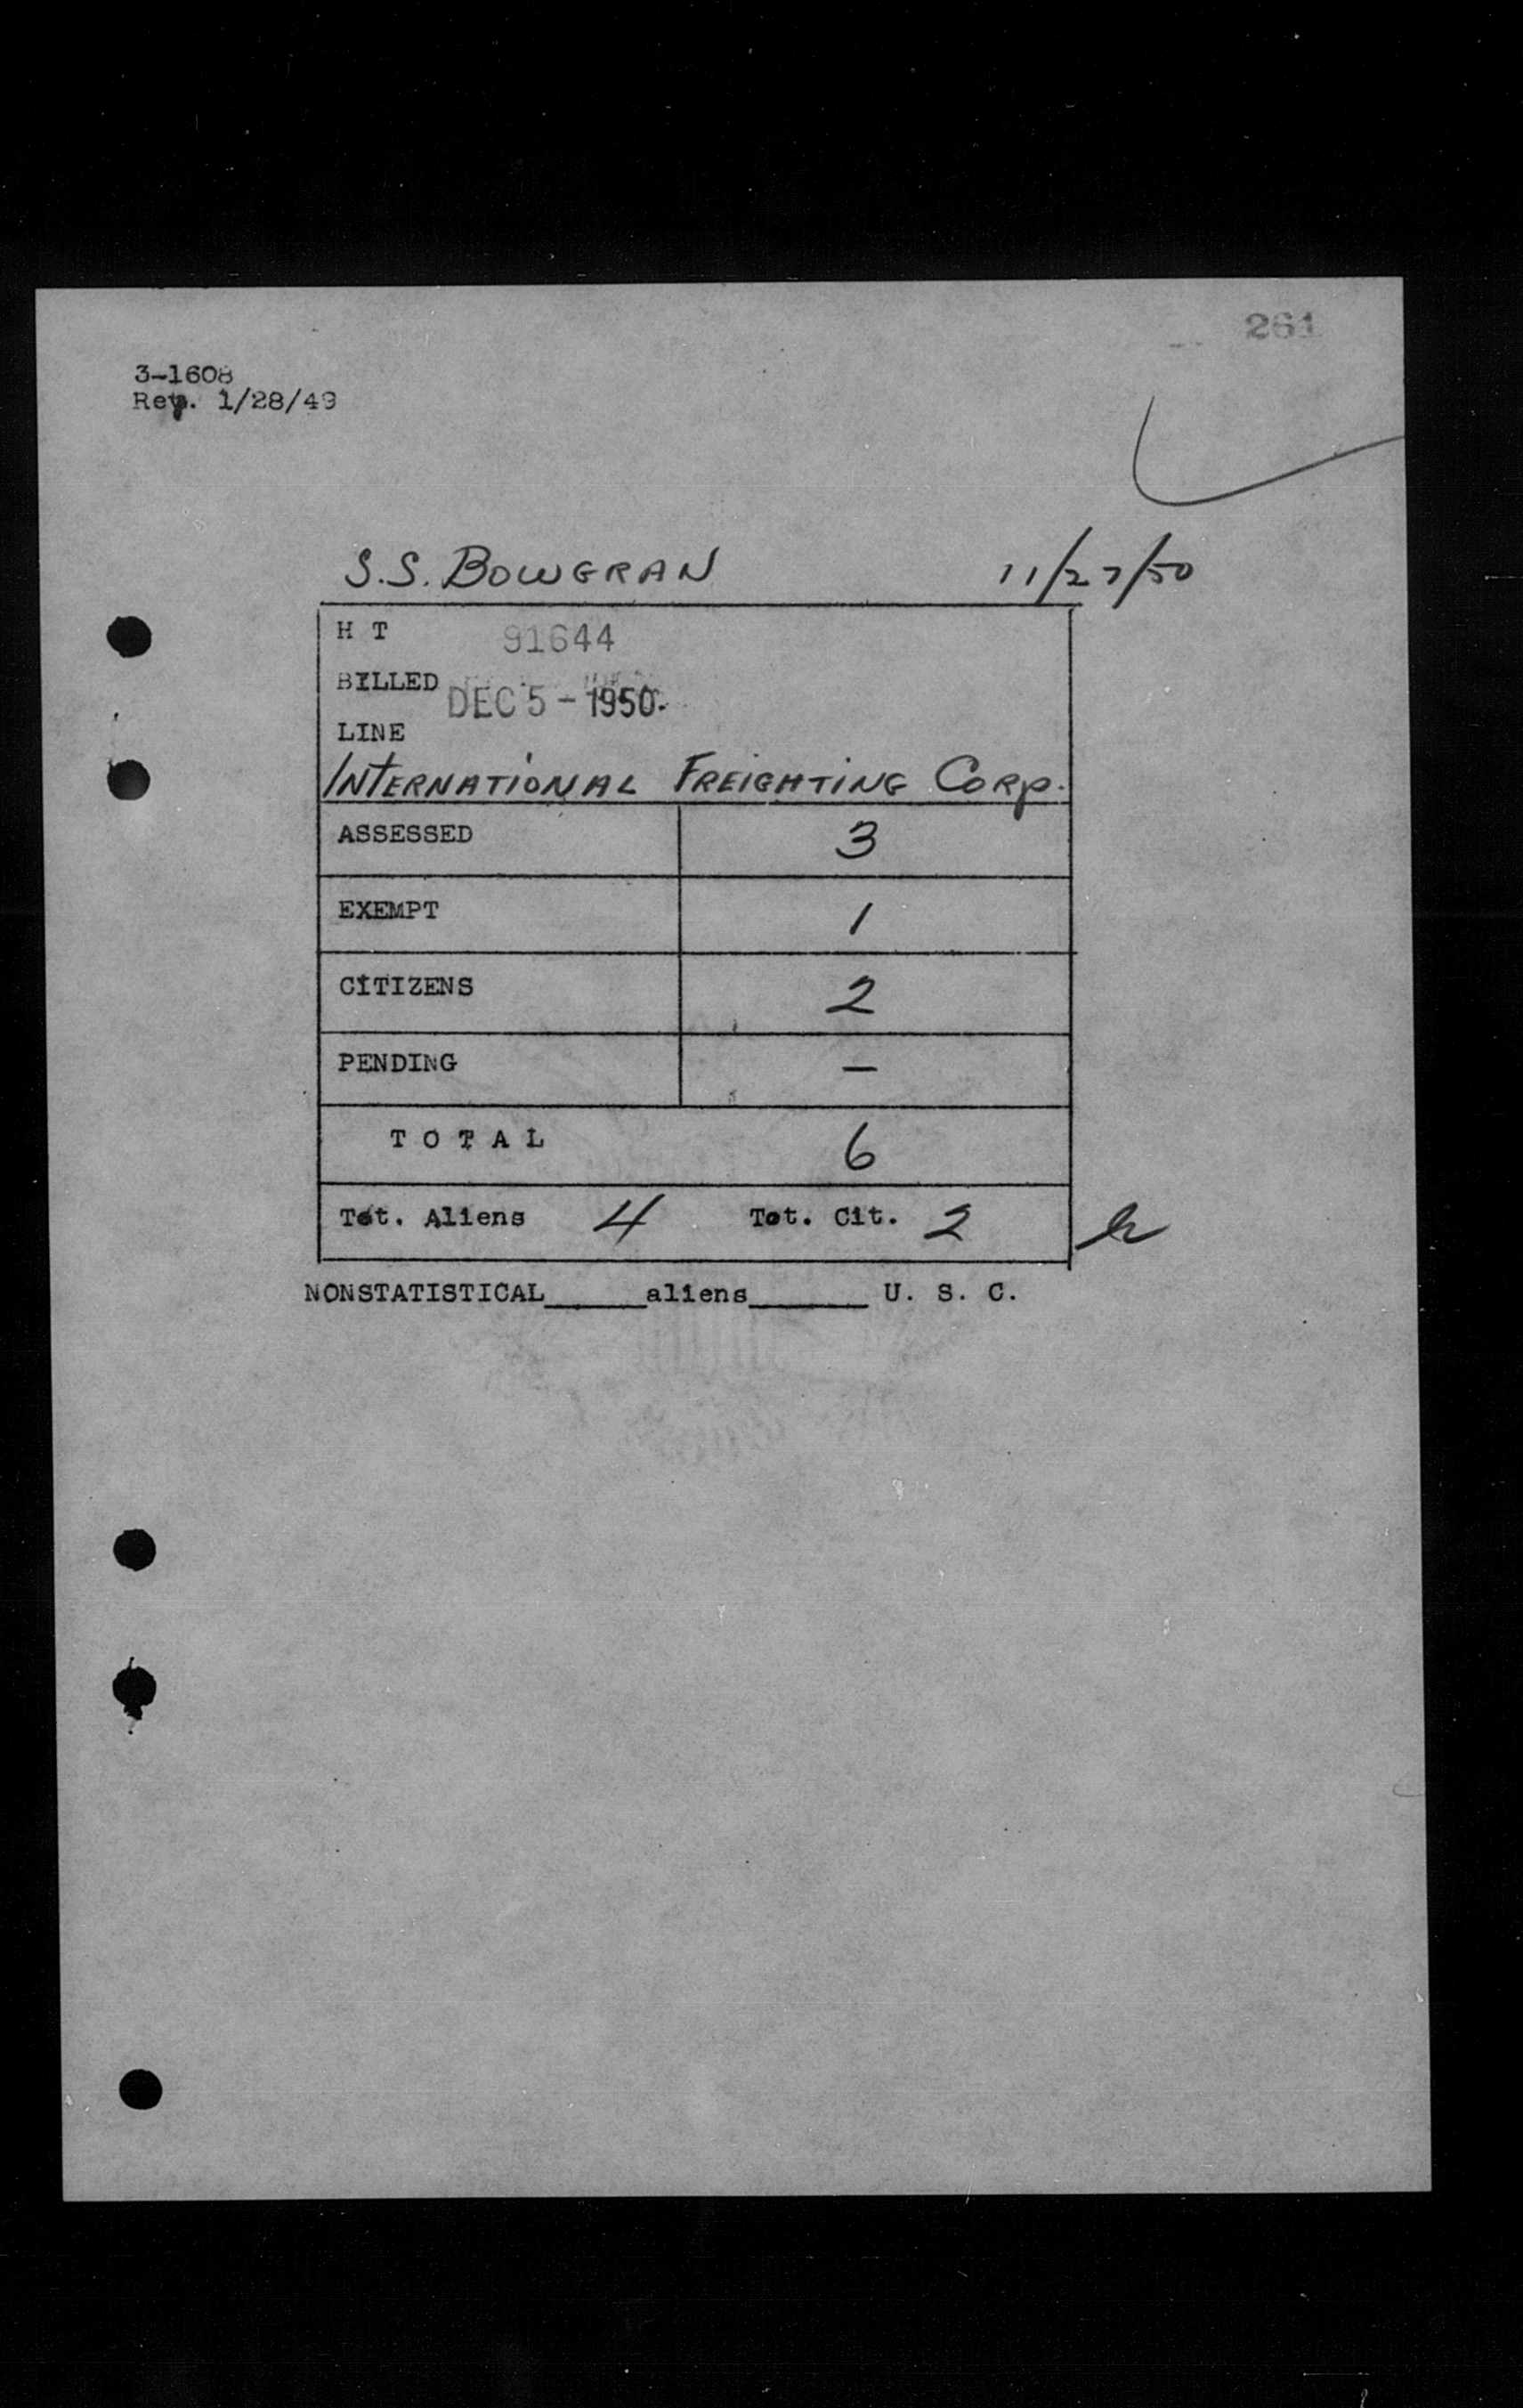 261
3-1608
Rev. 1/28/49
S.S. BOWGRAN 11/27/50
H T 91644
BILLED DEC 5 - 1950
LINE
INTERNATIONAL FREIGHTING CORP.
ASSESSED 3
EXEMPT 1
CITIZENS 2
PENDING —
T O T A L 6
Tot. Aliens 4 Tot. Cit. 2
NONSTATISTICAL_____aliens______ U. S. C.